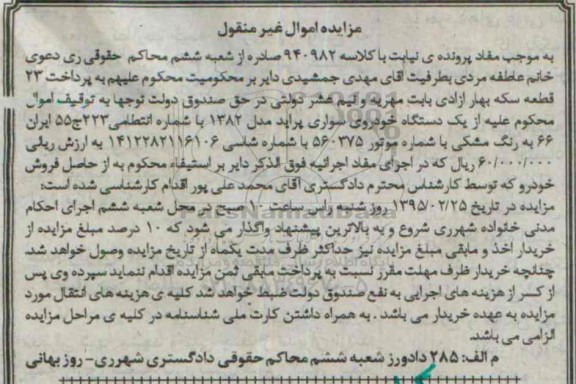 مزایده اموال غیر منقول
به موجب مفاد پرونده ی نیابت با کلاسه ۹۴۰۹۸۲ صادره از شعبه ششم محاکم حقوقی ری دعوی
خانم عاطفه مردی بطرفیت آقای مهدی جمشیدی دایر بر محکومیت محکوم علیهم به پرداخت ۲۳
قطعه سکه بهار ازادی بابت مهریه و نیم عشر دولتی در حق صندوق دولت توجها به توقیف اموال
محکوم علیه از یک دستگاه خودروی سواری پراید مدل ۱۳۸۲ با شماره انتظامی ۲۲۳ج۵۵ ایران
۶۶ به رنگ مشکی با شماره موتور ۵۶۰۳۷۵ با شماره شاسی ۱۴۱۲۲۸۲۱۱۶۱۰۶ به ارزش ریلی
۶۰/۰۰۰/۰۰۰ ریال که در اجرای مفاد اجرائیه فوق الذکر دایر بر استیفاء محکوم به از حاصل فروش
خودرو که توسط کارشناس محترم دادگستری آقای محمد علی پور اقدام کارشناسی شده است:
مزایده در تاریخ ۱۳۹۵/۰۲/۲۵ روز شنبه راس ساعت ۱۰ صبح در محل شعبه ششم اجرای احکام
مدنی خانواده شهرری شروع و به بالاترین پیشنهاد واگذار می شود که ۱۰ درصد مبلغ مزایده از
خریدار اخذ و مابقی مبلغ مزایده نیز حداکثر ظرف مدت یکماه از تاریخ مزایده وصول خواهد شد.
چنانچه خریدار ظرف مهلت مقرر نسبت به پرداخت مابقی ثمن مزایده اقدام ننماید سپرده وی پس
از کسر از هزینه های اجرایی به نفع صندوق دولت ضبط خواهد شد کلیه ی هزینه های انتقال مورد
مزایده به عهده خریدار می باشد . به همراه داشتن کارت ملی شناسنامه در کلیه ی مراحل مزایده
الزامی می باشد.
م الف: ۲۸۵ دادورز شعبه ششم محاکم حقوقی دادگستری شهرری- روز بهانی
ParsNamadData